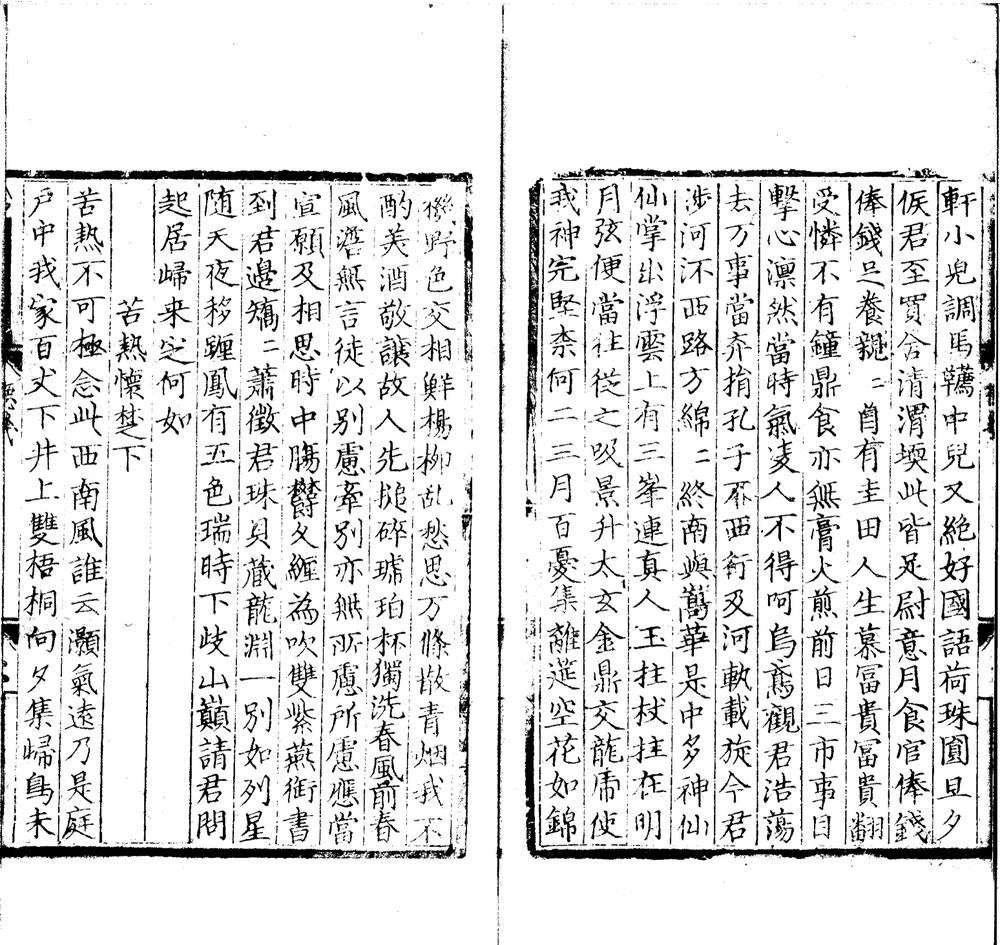 軒小兒調馬韉中兒又絶好國語荷珠圓旦夕
候君至買舍清渭堧此皆足尉意月食官俸錢
俸錢足養親〻自有圭田人生慕冨貴冨貴翻
受憐不有鐘鼎食亦無膏火煎前日三市事日
擊心凛然當時氣凌人不得呵烏鳶觀君浩蕩
去万事當弃捐孔子不西行及河軌載旋今君
涉河河西路方綿〻終南與嵩華是中多神仙
仙掌出浮雲上有三峯連真人玉拄杖拄在明
月弦便當往從之吸景升太玄金鼎交龍虎使
我神完堅柰何二三月百憂集離筵空花如錦
野色交相鮮楊柳乱愁思万條散青烟我不
酌美酒敬讓故人先搥碎琥珀杯獨洗春風前春
風澹無言徒以别慮牽别亦無所慮所慮應當
宣願及相思時中腸欝夂纏為吹雙紫燕銜書
到君邉矯〻蕭徵君珠貝蔵龍淵一别如列星
随天夜移躔鳳有五色瑞時下歧山巔請君問
起居歸来定何如
苦熱懷楚下
苦熱不可極念此西南風誰云灝氣遠乃是庭
戸中我家百丈下井上雙梧桐向夕集歸鳥未